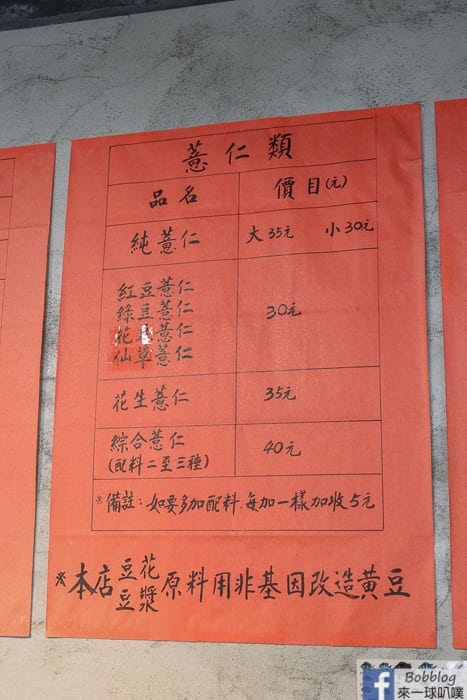 薏仁類
品名 價目(元)
純薏仁 大35元 小30元
紅豆薏仁
綠豆薏仁
花豆薏仁
仙草薏仁
30元
花生薏仁 35元
綜合薏仁
(配料二至三種)
40元
※備註:如要多加配料.每加一樣加收5元
※本店豆花豆漿原料用非基因改造黃豆
Bobblog
來一球叭噗